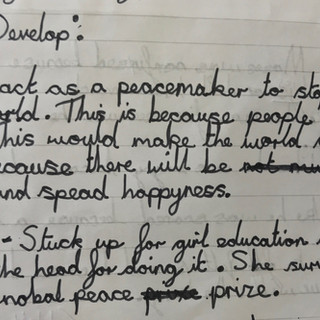 Develop:
act as a peacemaker to sto
rld. This is because people
his would make the world
ecause there will be not mu
and spead happyness.
- Stuck up for girl education
he head for doing it. She sur
nobal peace prize prize.